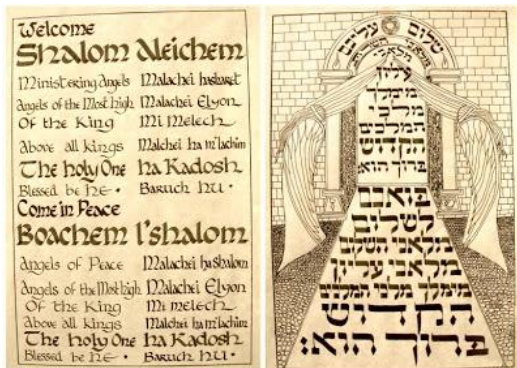 Welcome
Shalom Aleichem
Ministering Angels Malachei hasharet
Angels of the Most high Malachei Elyon
Of the King Mi Melech
Above all kings Malchei ha m'lachim
The holy One ha Kadosh
Blessed be He • Baruch hu •
Come in Peace
Boachem l'shalom
Angels of Peace Malachei ha Shalom
Angels of the Most high Malachei Elyon
Of the King Mi melech
Above all kings Malchei ha m'lachim
The holy One ha Kadosh
Blessed be He • Baruch hu •
שלום עליכם
מלאכי השרת
מלאכי
עליון
ממלך
מלכי
המלכים
הקדוש
ברוך הוא:
בואכם
לשלום
מלאכי השלום
מלאכי עליון
ממלך מלכי המלכים
הקדוש
ברוך הוא: